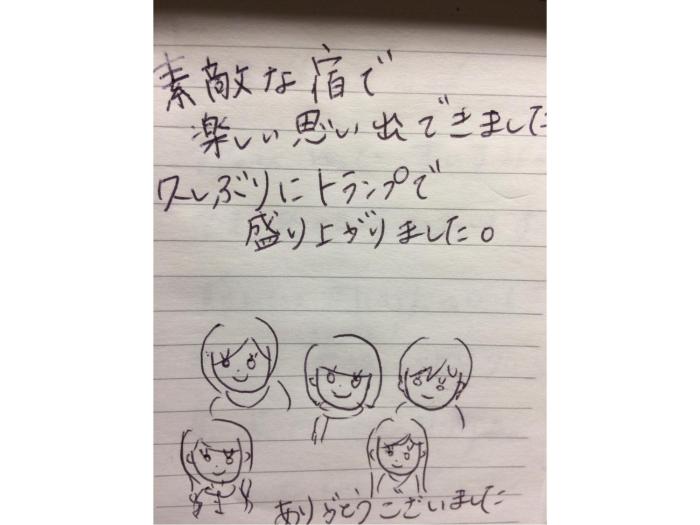 素敵な宿で
楽しい思い出できました
久しぶりにトランプで
盛り上がりました。
ありがとうございました